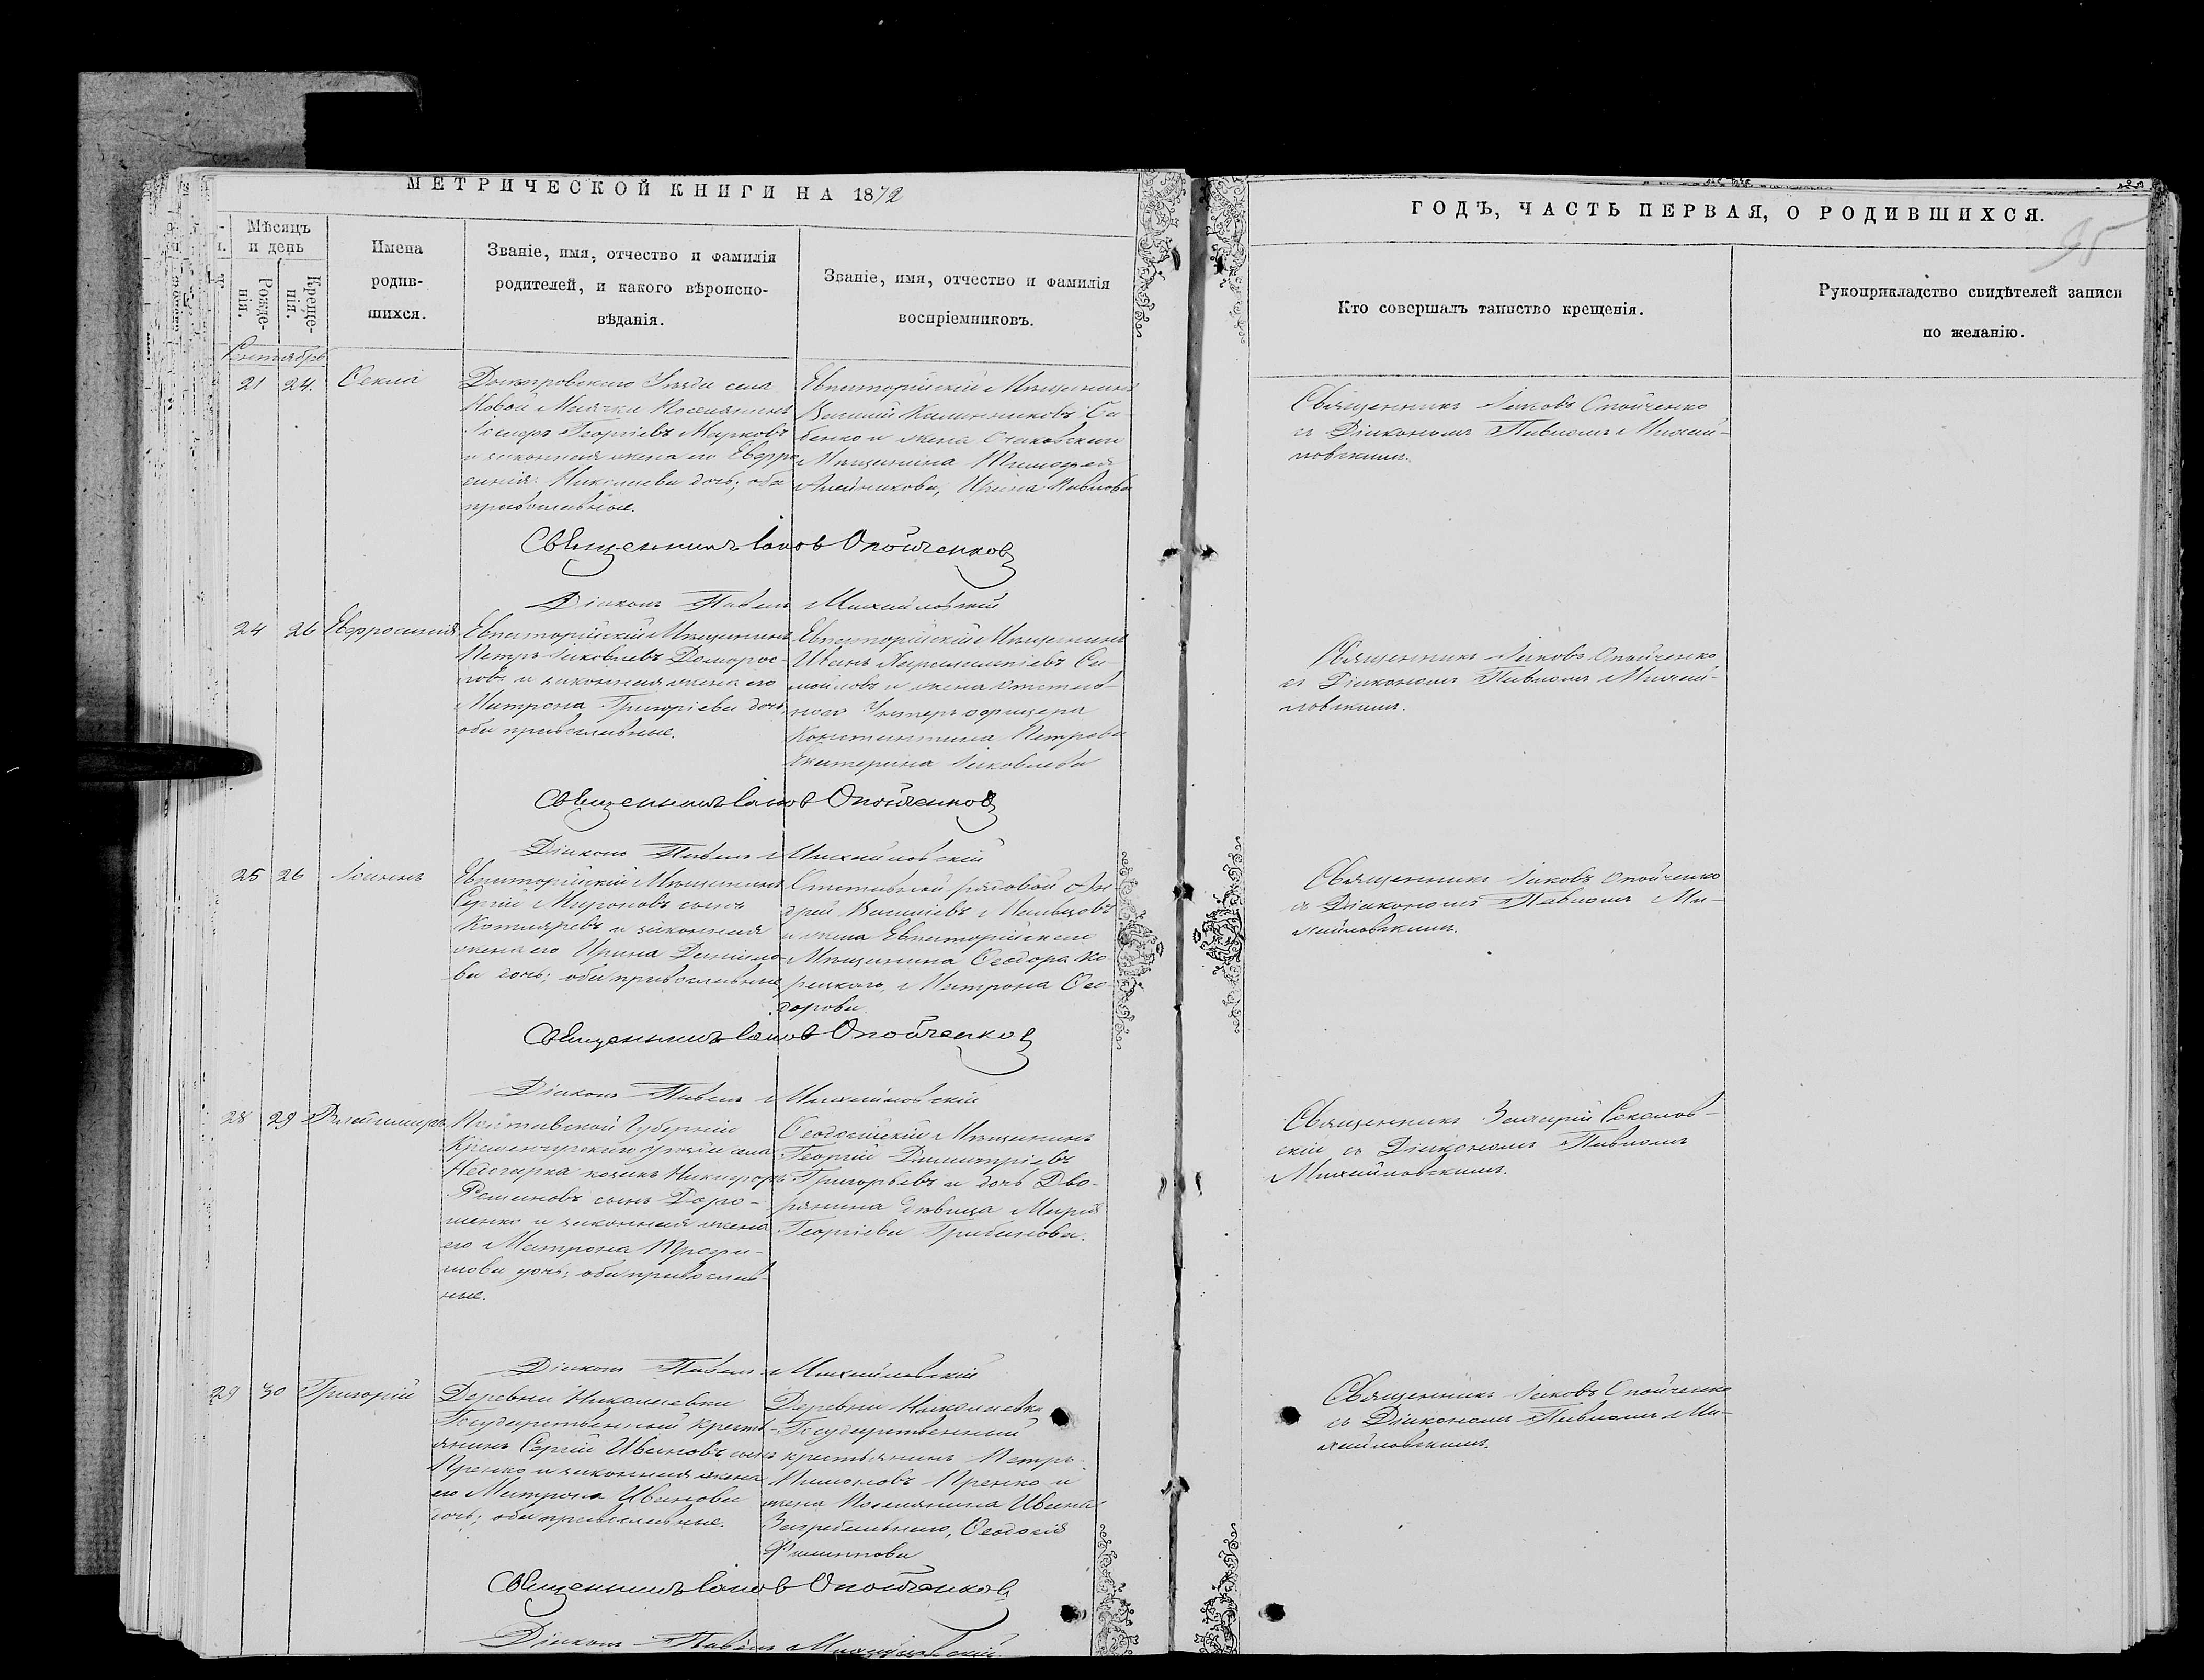 МЕТРИЧЕСКОЙ КНИГИ НА 1872
Мѣсяцъ
и день
Рожде-
нія.
Креще-
нія.
Имена
родив-
шихся.
Званіе, имя, отчество и фамилія
родителей, и какого вѣроиспо-
вѣданія.
Званіе, имя, отчество и фамилія
воспріемниковъ.
Сентябрь
21 24. Ѳекла
Днѣпровскаго Уѣзда села
Новой Маячки Поселянинъ
Георгіевъ Марковъ
и законная жена его Евфро
синія Николаева дочь, оба
православные.
Евпаторійскій Мѣщанинъ
Василій Калинниковъ Са-
бенко и жена Очаковскаго
Мѣщанина Тимофея
Алейникова, Ирина Павлова
Священникъ Іаковъ Опойченковъ
Діаконъ Павелъ Михайловскій
24 26 Евфросинія
Евпаторійскій Мѣщанинъ
Петръ Яковлевъ Доморос-
ловъ и законная жена его
Матрона Григоріева дочь,
оба православные.
Евпаторійскій Мѣщанинъ
Иванъ Харлампіевъ Са-
мойловъ и жена отстав-
ного Унтеръ офицера
Константина Петрова
Екатерина Яковлева
Священникъ Іаковъ Опойченковъ
Діаконъ Павелъ Михайловскій
25 26 Іоаннъ
Евпаторійскій Мѣщанинъ
Сергій Мироновъ сынъ
Котляревъ и законная
жена его Ирина Данило-
ва дочь; оба православные
Отставной рядовой Ан-
дрей Василіевъ Мальцовъ
и жена Евпаторійскаго
Мѣщанина Ѳеодора Ко-
рецкаго, Матрона Ѳео-
дорова
Священникъ Іаковъ Опойченковъ
Діаконъ Павелъ Михайловскій
28 29 Владиміръ
Полтавской Губерніи
Кременчугскаго уѣзда села
Недогарка козакъ Никифоръ
Романовъ сынъ Доро-
шенко и законная жена
его Матрона Трофи-
мова дочь; оба православ-
ные.
Ѳеодосійскій Мѣщанинъ
Георгій Димитріевъ
Григорьевъ и дочь Дво-
рянина дѣвица Марія
Георгіева Грибанова.
Діаконъ Павелъ Михайловскій
29 30 Григорій
Деревни Николаевки
Государственный крестъ-
янинъ Сергій Ивановъ сынъ
Пренко и законная жена
его Матрона Иванова
дочь; оба православные.
Деревни Николаевка
Государственный
крестьянинъ Петръ
Пимоновъ Пренко и
жена Поселянина Ивана
Загребельнаго, Ѳеодосія
Филиппова
Священникъ Іаковъ Опойченковъ
Діаконъ Павелъ Михайловскій
ГОДЪ, ЧАСТЬ ПЕРВАЯ, О РОДИВШИХСЯ.
95
Кто совершалъ таинство крещенія.
Рукоприкладство свидѣтелей записи
по желанію.
Священникъ Іаковъ Опойченко
съ Діакономъ Павломъ Михай-
ловскимъ.
Священникъ Іаковъ Опойченко
съ Діакономъ Павломъ Михай-
ловскимъ.
Священникъ Іаковъ Опойченко
съ Діакономъ Павломъ Ми-
хайловскимъ.
Священникъ Валерій Соколов-
скій съ Діакономъ Павломъ
Михайловскимъ.
Священникъ Іаковъ Опойченко
съ Діакономъ Павломъ Ми-
хайловскимъ.